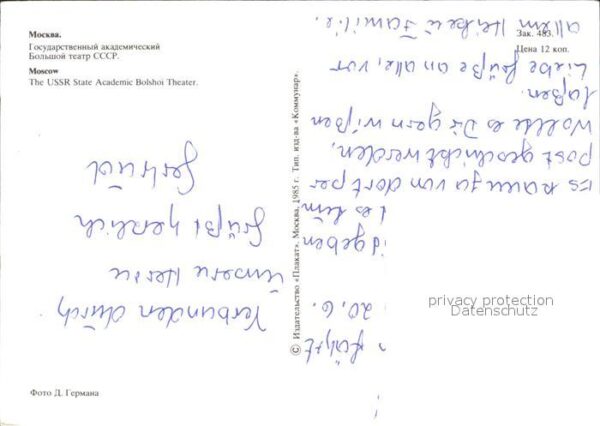 Москва.
Государственный академический
Большой театр СССР.
Moscow
The USSR State Academic Bolshoi Theater.
Зак. 483.
Цена 12 коп.
© Издательство «Плакат». Москва. 1985 г. Тип. изд-ва «Коммунар».
Фото Д. Германа
privacy protection
Datenschutz
20.6.
geben
Es kann ja von dort per
post geschickt werden.
Wollte es Dir gern wißen
laßen.
Liebe Grüße an alle, vor
allem Familie.
Verbunden durch
unseren Herrn
grüßt herzlich
Gertrud